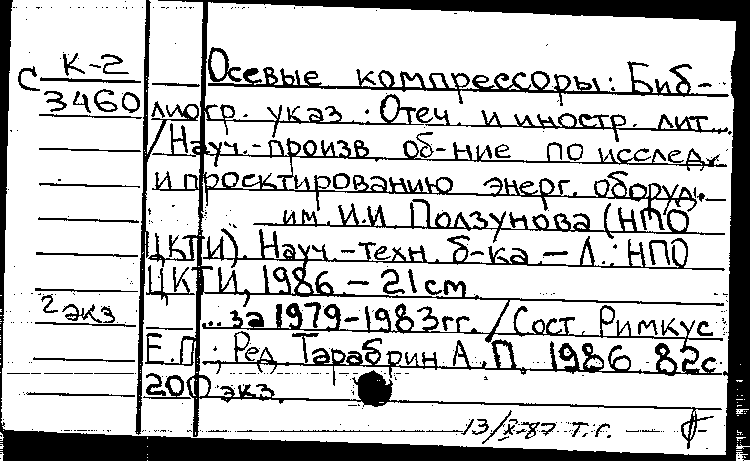 К-2
С 3460
Осевые компрессоры: Биб-
лиогр. указ.: Отеч. и иностр. лит...
/Науч.-произв. об-ние по исслед.
и проектированию энерг. оборуд.
им. И.И. Ползунова (НПО
ЦКТИ). Науч.-техн. б-ка.- Л.: НПО
ЦКТИ, 1986. - 21 см.
2 экз
...за 1979-1983гг. /Сост. Римкус
Е.П.; Ред. Тарабрин А.П. 1986 82с.
200 экз.
13/X-87 т.г.